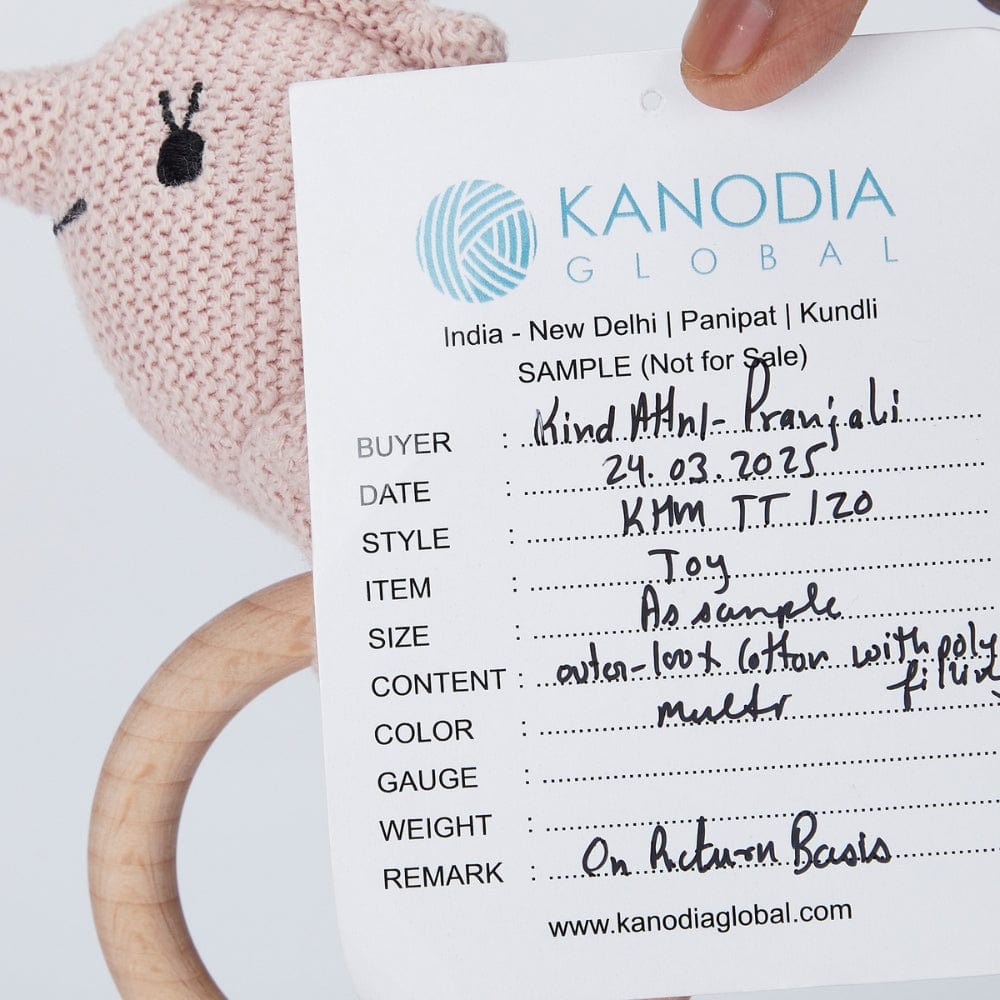 KANODIA
GLOBAL
India - New Delhi | Panipat | Kundli
SAMPLE (Not for Sale)
BUYER : Kind Attn/- Pranjali
DATE : 24.03.2025
STYLE : KHM TT 120
ITEM : Toy
SIZE : As sample
CONTENT : outer-100% Cotton with poly
COLOR : multi
GAUGE :
WEIGHT :
REMARK : On Return Basis
www.kanodiaglobal.com